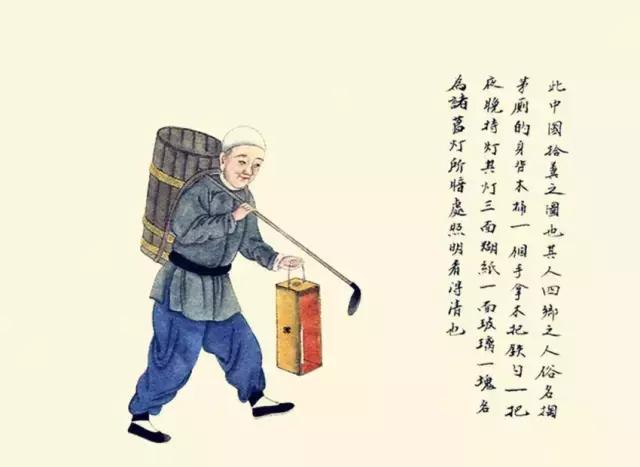 此中國拾糞之圖也其人四鄉之人俗名掏
茅厠的身背木桶一個手拿木把鉄勺一把
夜晚持灯其灯三面糊紙一面玻璃一塊名
為諸葛灯所時處照明看得清也